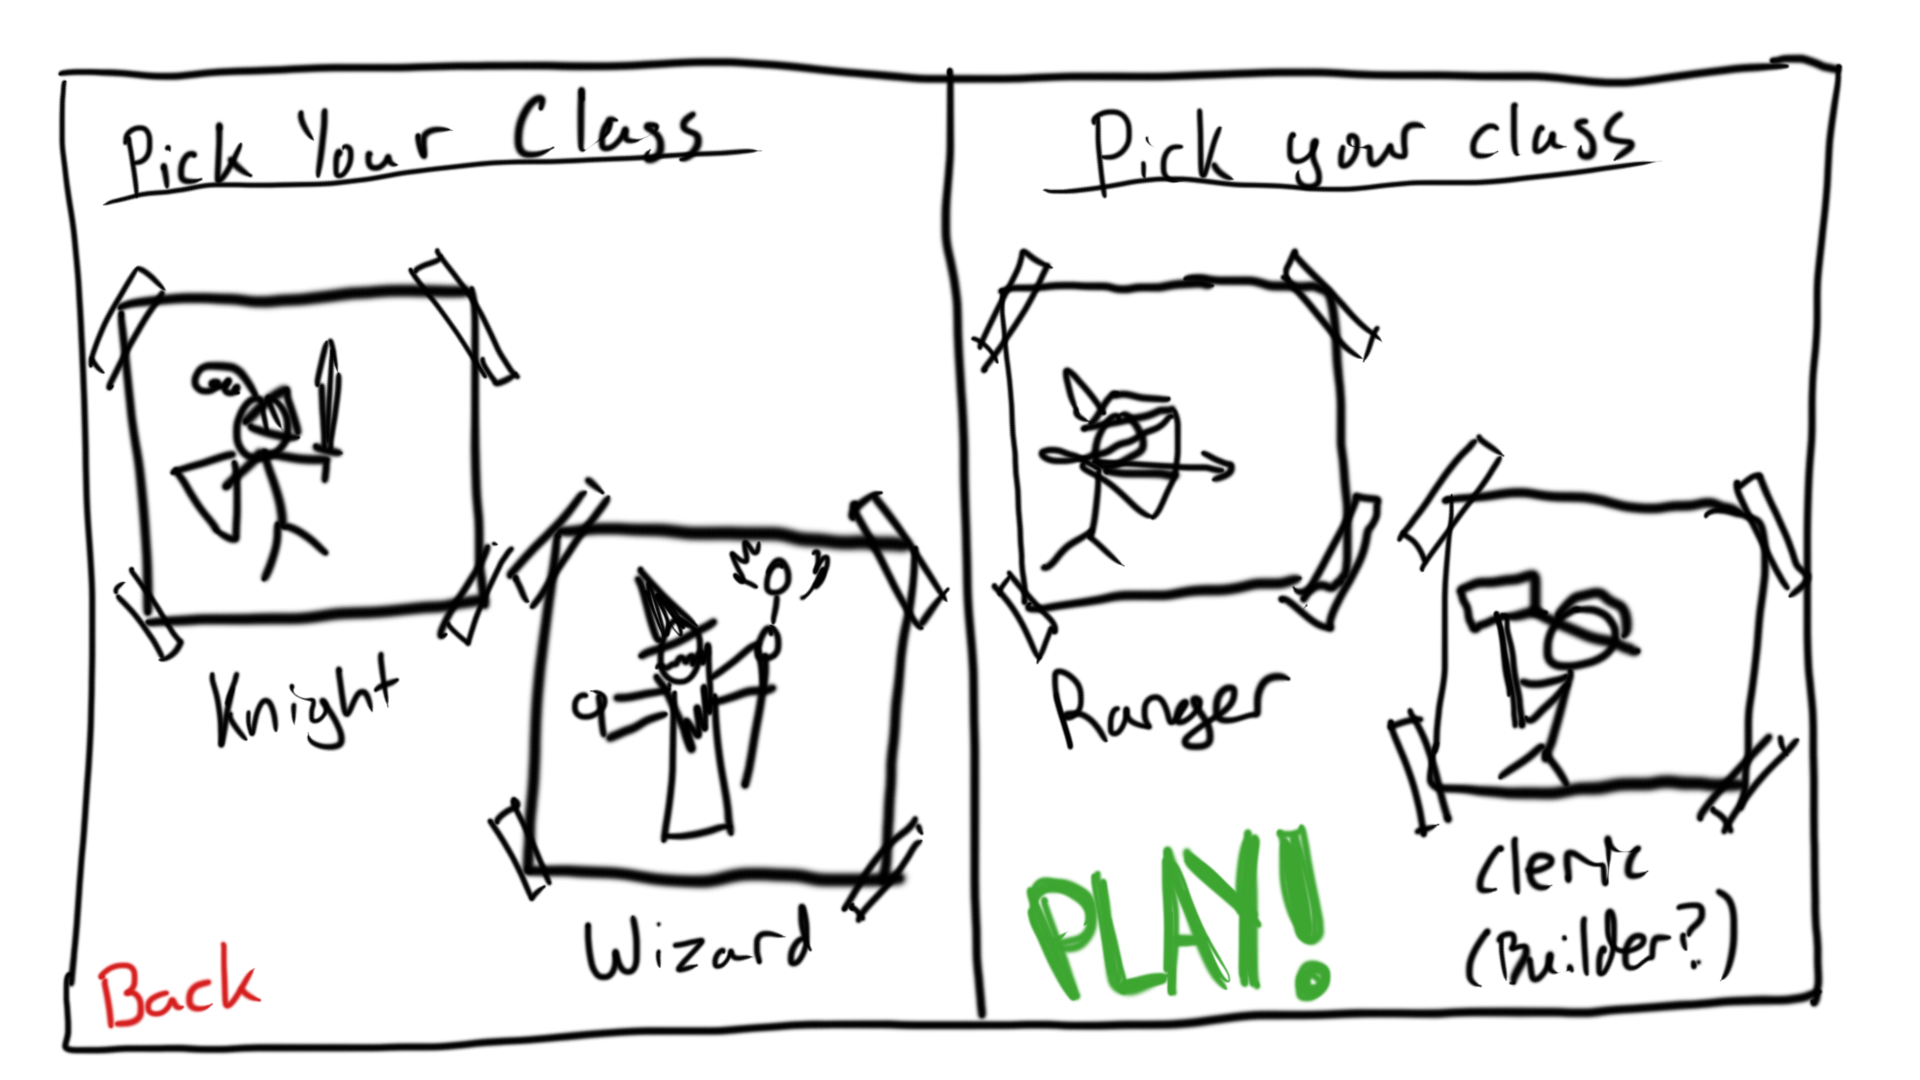 Pick Your Class
Knight
Wizard
Back
Pick your class
Ranger
Cleric
(Builder?)
PLAY!